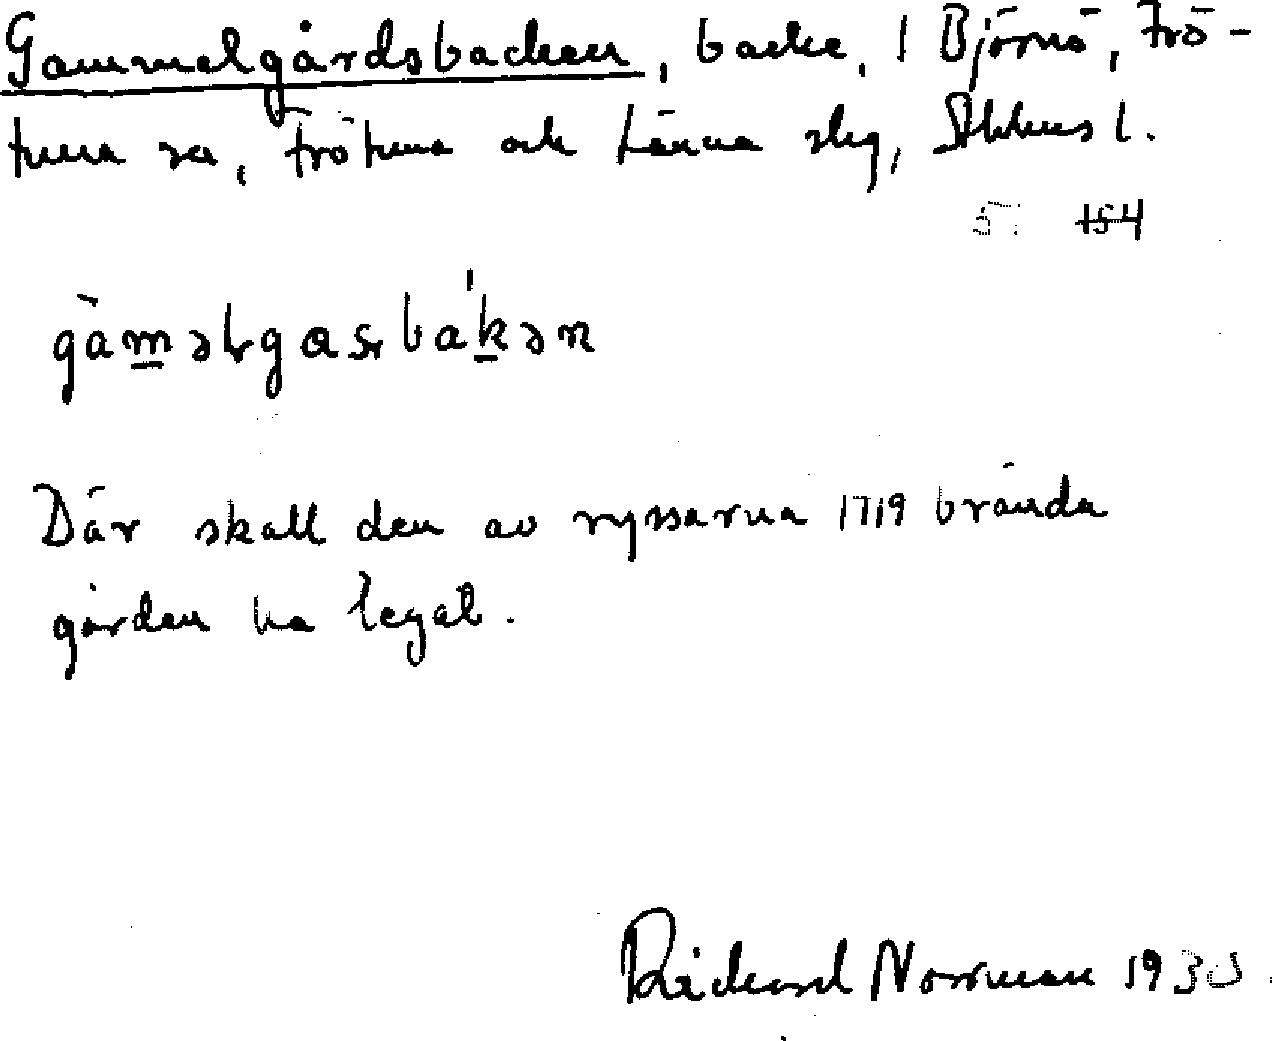 Gammelgårdsbacken, backe, i Björnö, Frö-
tuna sn, Frötuna och Länna slg, Sthlms l.
154
gàmǝlgasbákǝn
Där skall den av ryssarna 1719 brända
gården ha legat.
Rickard Norrman 1930